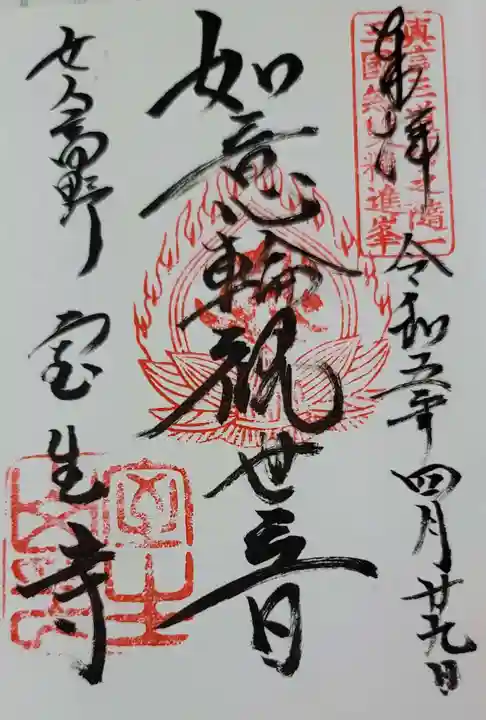 奉拝
令和五年四月廿九日
如意輪観世音
女人高野 室生寺